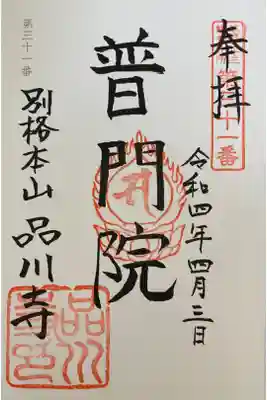 奉拝
第三十一番
令和四年四月三日
普門院
第三十一番
別格本山 品川寺
品川寺